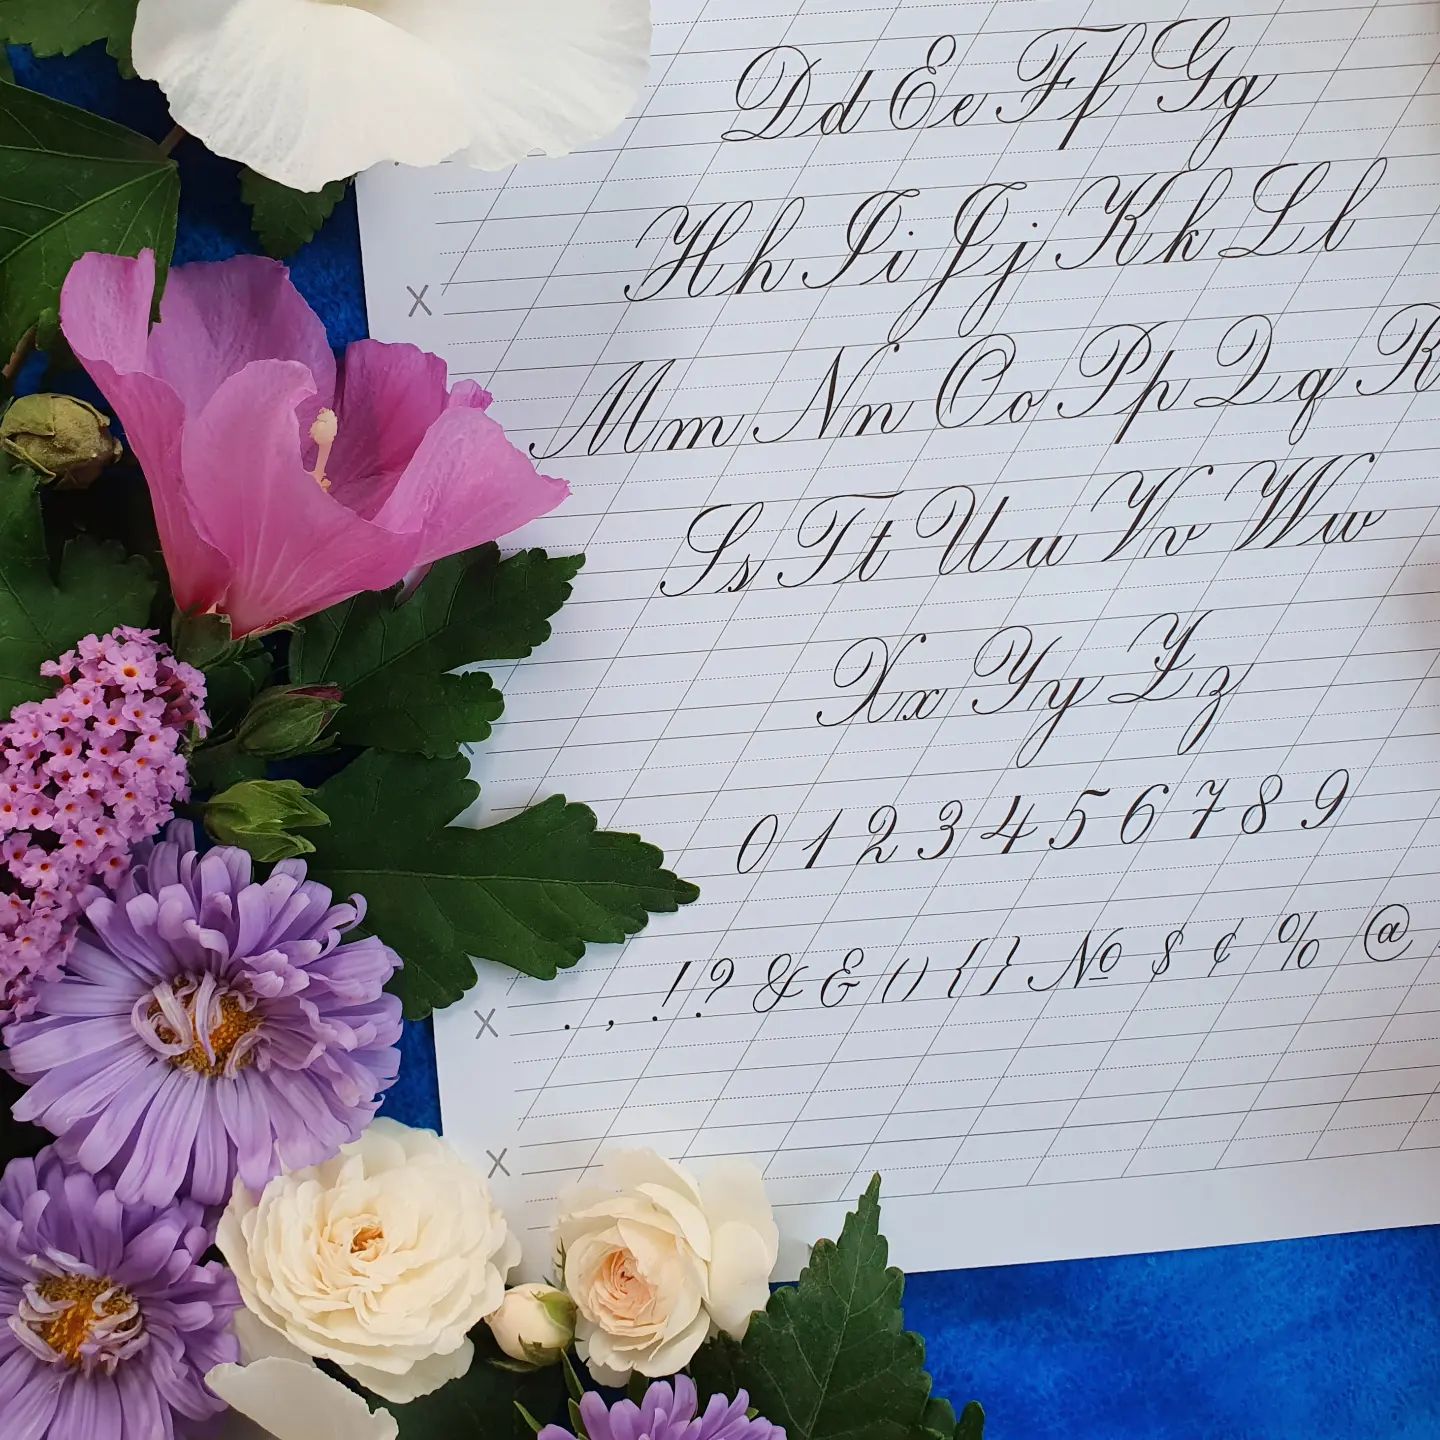 Dd Ee Ff Gg
Hh Ii Jj Kk Ll
Mm Nn Oo Pp Qq R
Ss Tt Uu Vv Ww
Xx Yy Zz
0 1 2 3 4 5 6 7 8 9
. , ! ? & & ( ) { } № $ ¢ % @
X
X
X